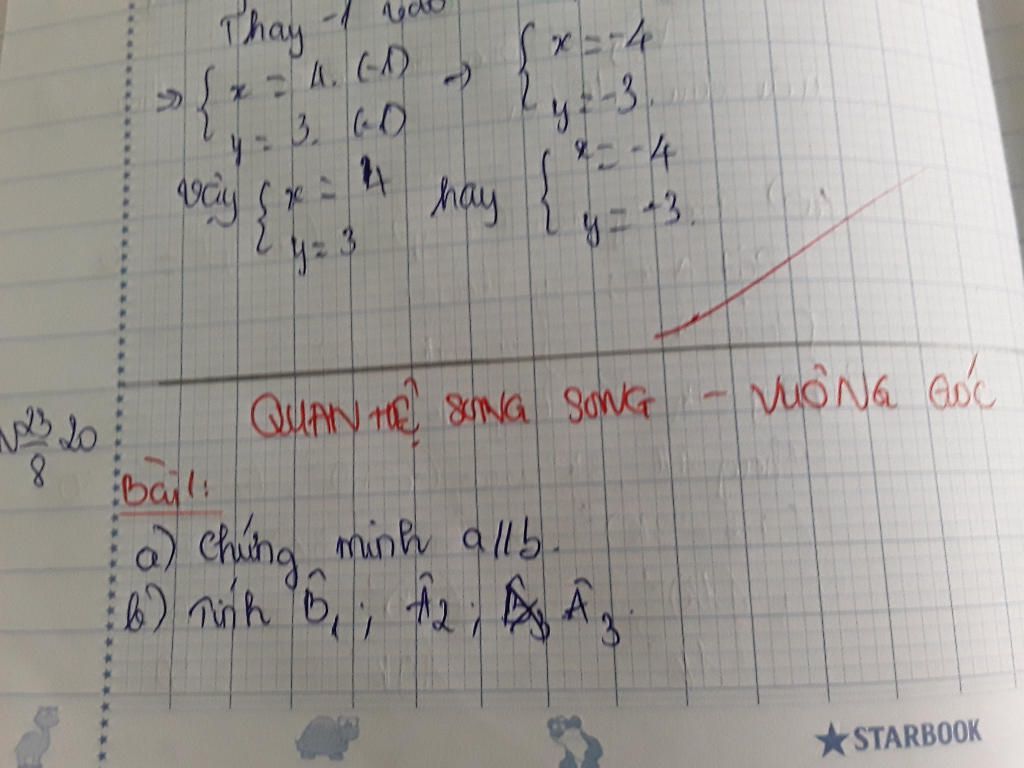 Thay -1 vào
=> { x = 4. (-1) y = 3. (-1) -> { x = -4 y = -3.
Vậy { x = 4 y = 3 hay { x = -4 y = -3.
QUAN HỆ SONG SONG - VUÔNG GÓC
23/8 20
Bài 1:
a) Chứng minh a//b.
b) Tính B̂1; Â2; Â3.
★STARBOOK